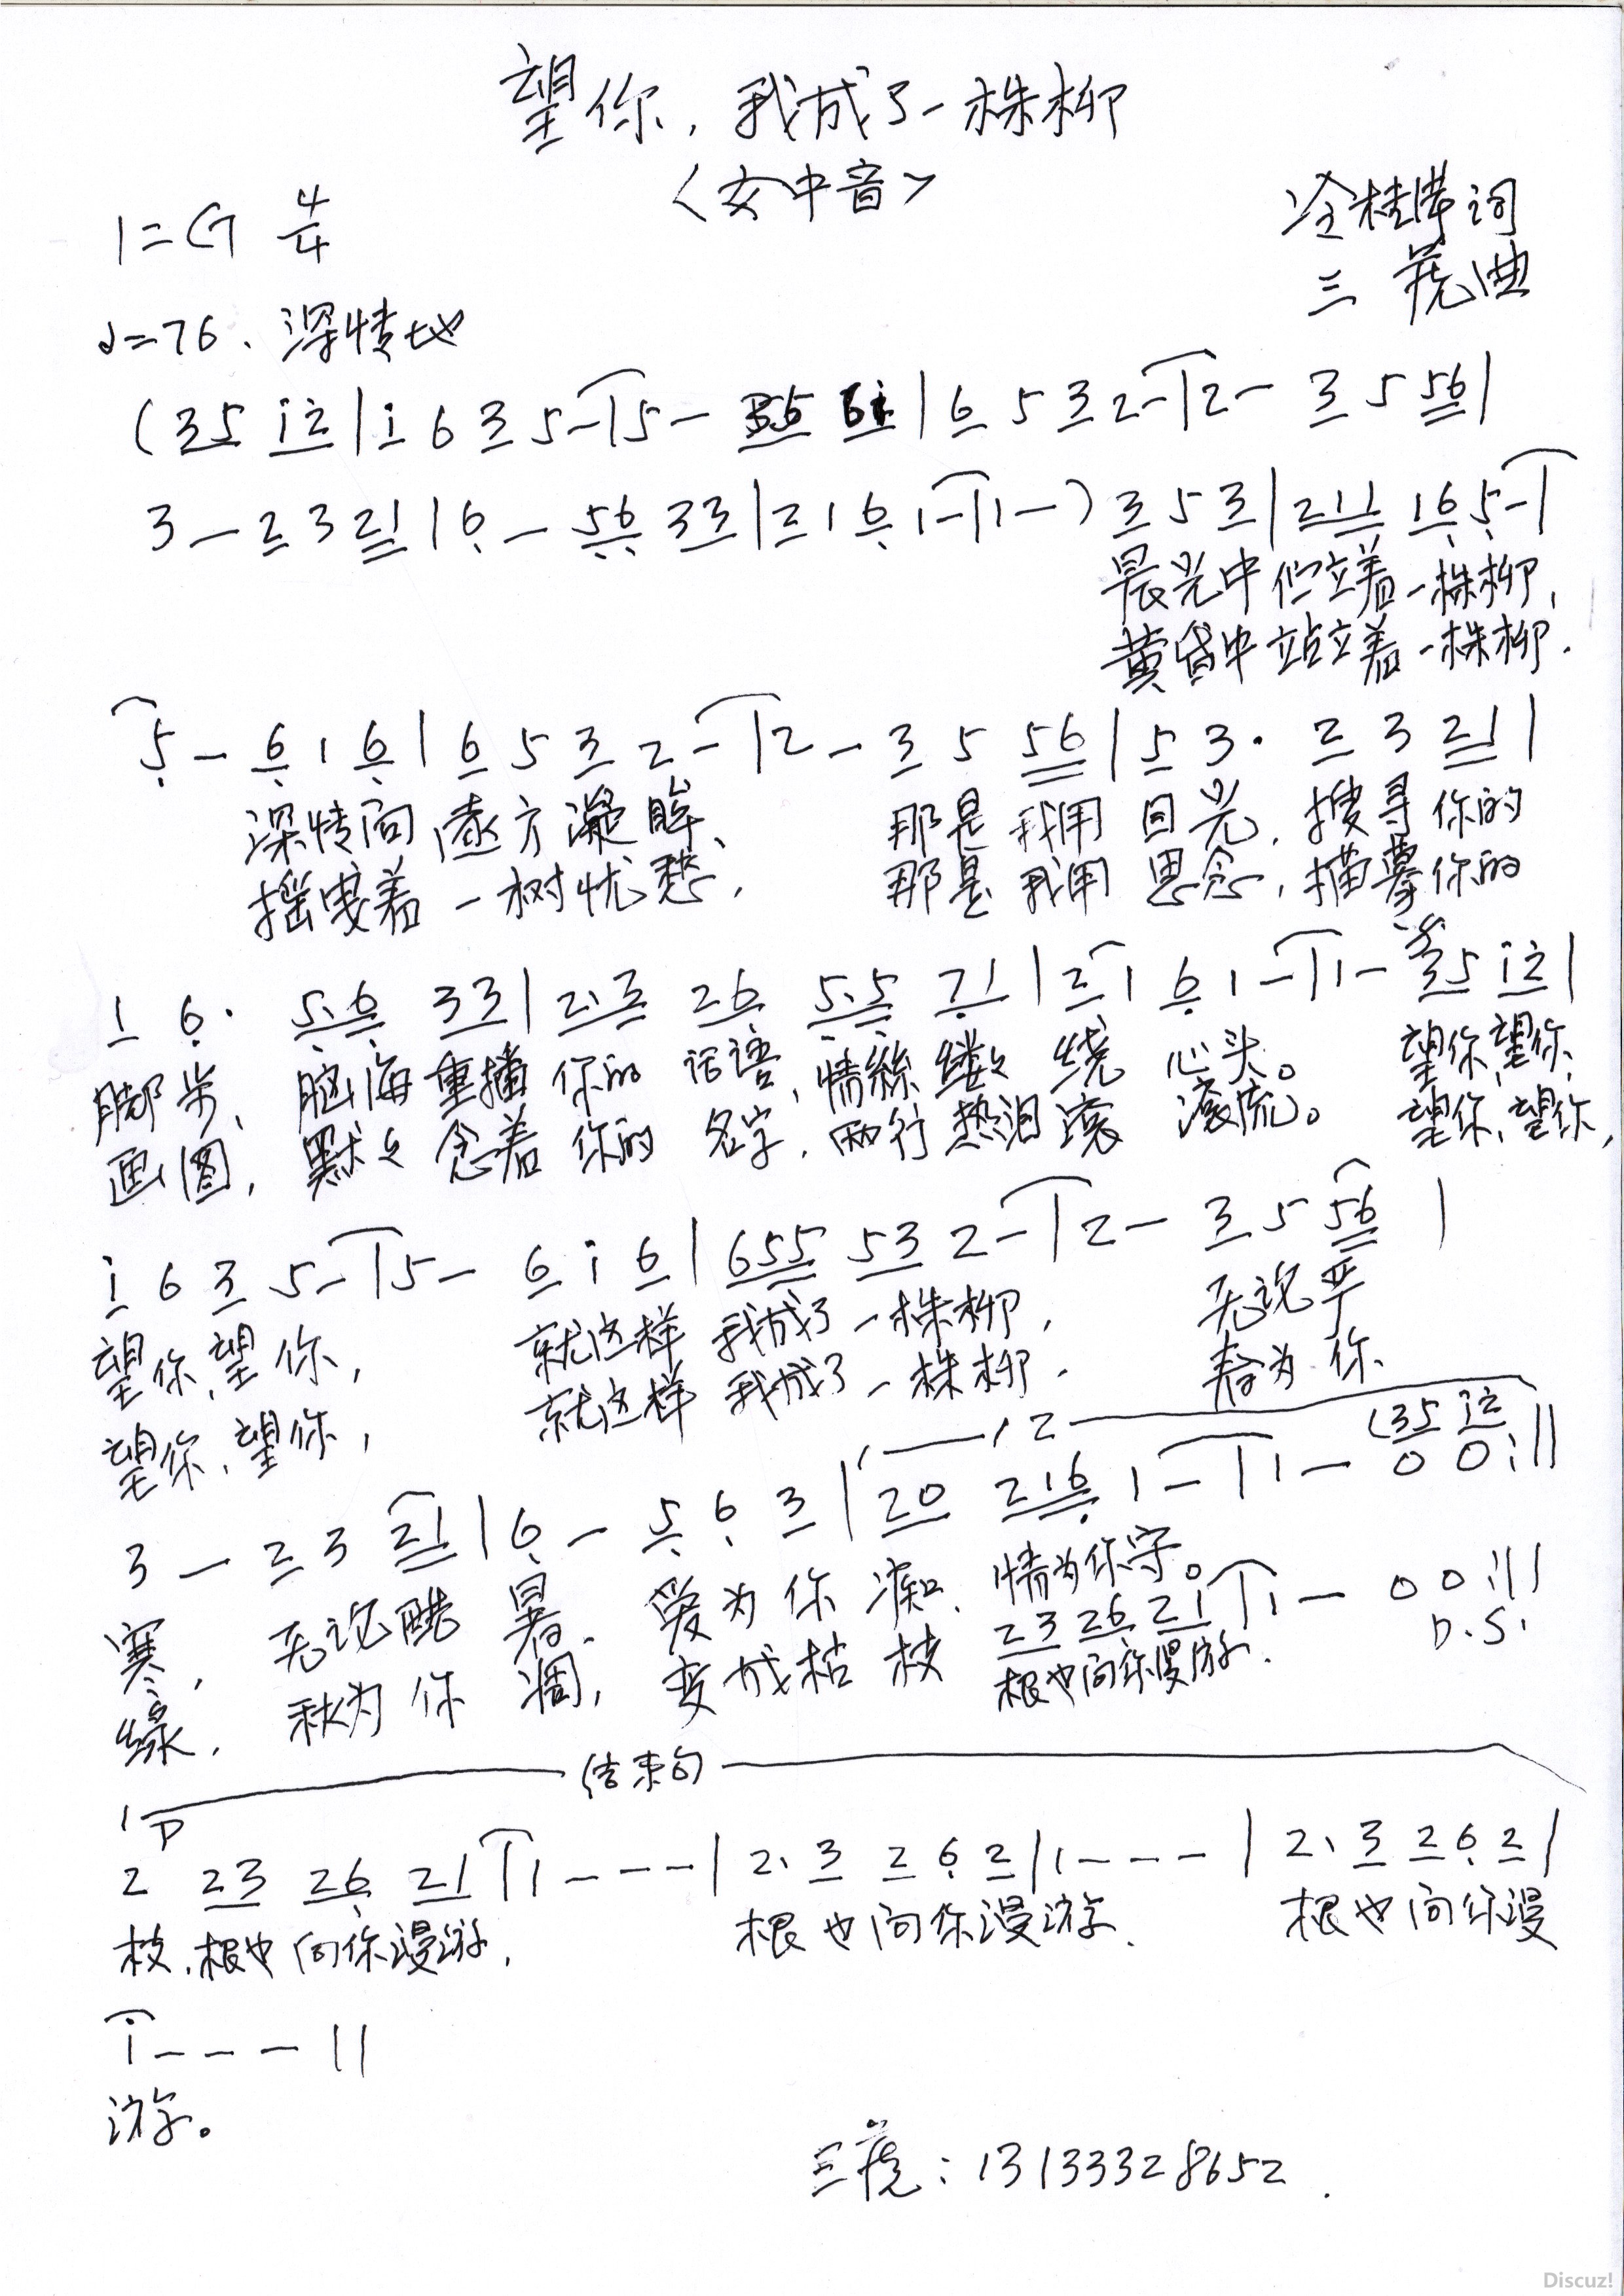 望你，我成了一株柳
<女中音>
1=G 4/4
冷桂萍词
三 虎曲
♩=76、深情地
(35 i2|i 6 3 5-|5- 35 6i|6 5 3 2-|2- 3 5 56|
3-2 3 21|6-56 33|2 1 6 1-|1-) 3 5 3|211 165-|
晨光中伫立着一株柳，
黄昏中站立着一株柳.
5-6 1 6|6 5 3 2-|2-3 5 56|5 3· 2 3 21|
深情向远方凝眸、 那是我用目光，搜寻你的
摇曳着一树忧愁， 那是我用思念，描摹你的
1 6· 5·6 33|2·3 26 5·5 71|2 1 6 1-|1- 35 i2|
脚步、脑海重播你的话语，情絲缕々绕心头。 望你，望你，
画图，默々念着你的名字，两行热泪滚滚流。 望你、望你，
i 6 3 5-|5- 6 i 6|655 53 2-|2- 3 5 56|
望你、望你， 就这样我成了一株柳， 无论严
望你、望你， 就这样我成了一株柳. 春为你
3-2 3 21|6-5 6 3|20 216 1-|1- 0 0:||
1 2
(35 i2
寒， 无论酷暑. 爱为你痴、情为你守。
23 26 21|1- 0 0:||
D.S.
绿， 秋为你凋，变成枯枝 根也向你漫游.
结束句
2 23 26 21|1---|2· 3 2 6 2|1---|2· 3 2 6 2|
枝、根也向你漫游， 根也向你漫游. 根也向你漫
i---||
游。
三虎：13133328652.
Discuz!